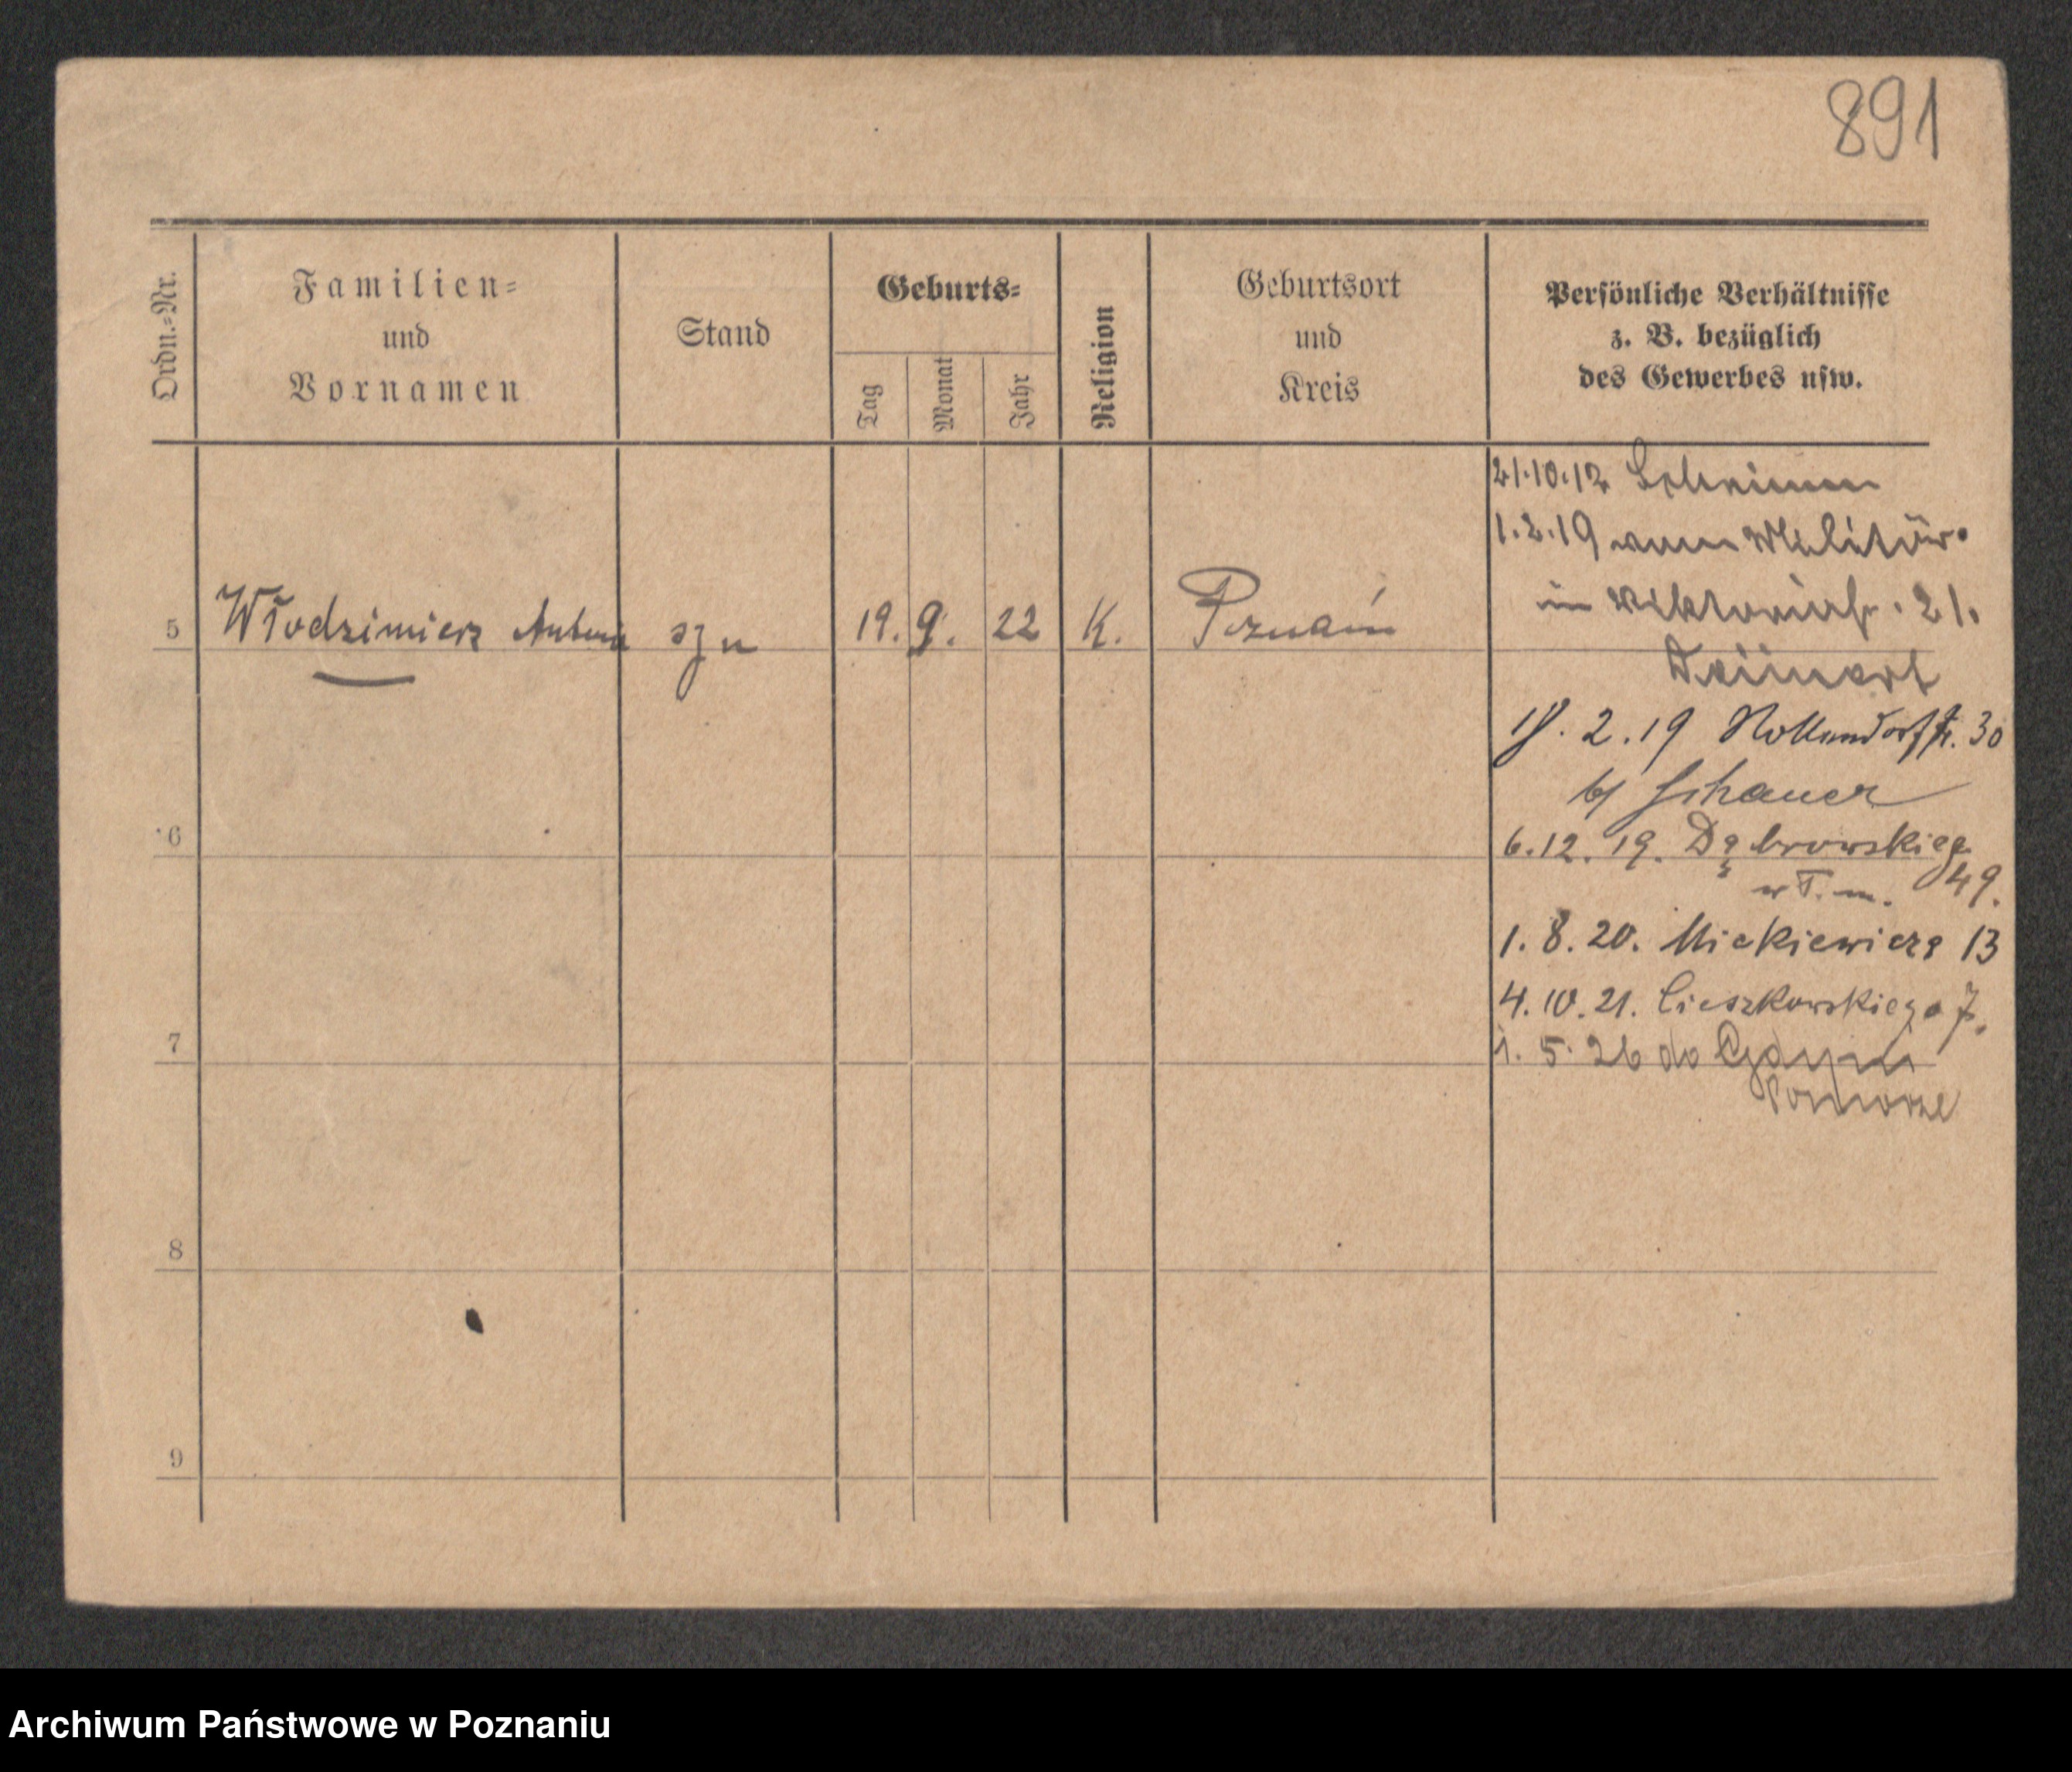 891
Ordn.-Nr.
Familien-
und
Vornamen
Stand
Geburts-
Tag
Monat
Jahr
Religion
Geburtsort
und
Kreis
Persönliche Verhältnisse
z. B. bezüglich
des Gewerbes usw.
21.10.12 Schrimm
1.2.19 vom Militär.
in Viktoriastr. 21.
5 Włodzimierz Antoni syn 19. 9. 22 K. Poznań
18. 2. 19 Nollendorfstr. 30
b/ Schauer
6
6. 12. 19. Dąbrowskieg
w T. m. 49.
1. 8. 20. Mickiewicza 13
4. 10. 21. Cieszkowskiego 7.
7
1. 5. 26 do Gdyni
Pomorze
8
9
Archiwum Państwowe w Poznaniu